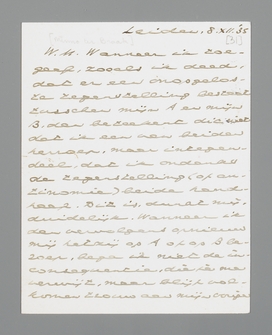 Leiden, 8.XII.35
[B1]
W.H. Wanneer ik toe-
geef, zooals ik deed,
dat er een onopgelos-
te tegenstelling bestaat
tusschen mijn A en mijn
B, dan beteekent dit niet
dat ik een van beiden
herroep, maar integen-
deel, dat ik ondanks
de tegenstelling (of an-
tinomie) beide hand-
haaf. Dit is, dunkt mij
duidelijk. Wanneer ik
dan vervolgens opnieuw
mij hetzij op A of op B ba-
seer, bega ik niet de in-
consequentie, die je me
verwijt, maar blijf vol-
komen trouw aan mijn vorige